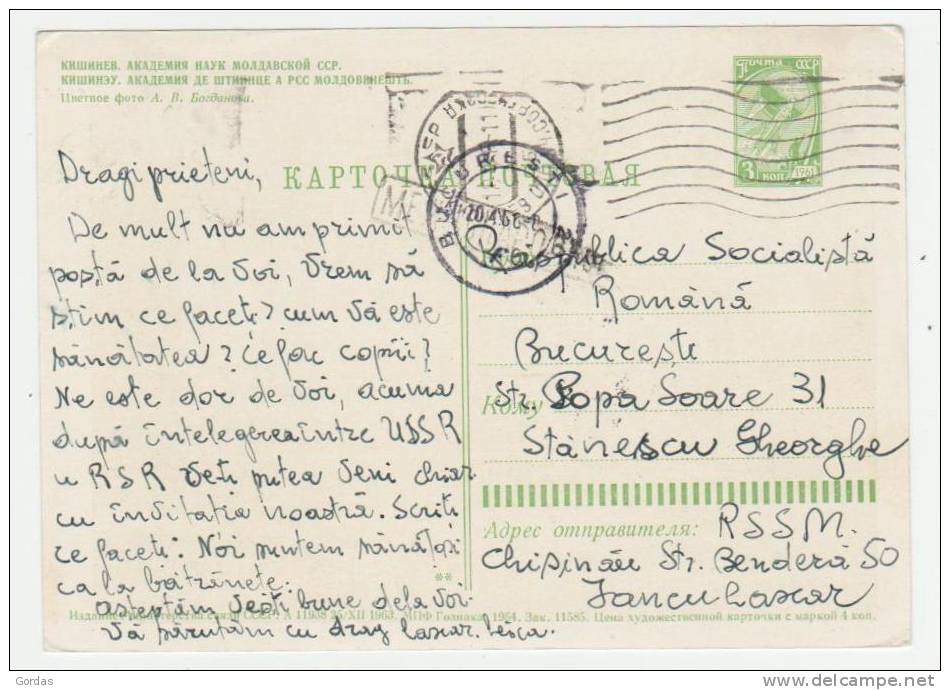 КИШИНЕВ. АКАДЕМИЯ НАУК МОЛДАВСКОЙ ССР.
КИШИНЭУ. АКАДЕМИЯ ДЕ ШТИИНЦЕ А РСС МОЛДОВЕНЕШТЬ.
Цветное фото А. В. Богданова.
ПОЧТА СССР
3 КОП. 1961
КАРТОЧКА ПОЧТОВАЯ
BUCUREȘTI
Dragi prieteni,
De mult nu am primit
poștă de la Voi, Vrem să
știm ce faceți? cum Vă este
sănătatea? Ce fac copii?
Ne este dor de Voi, acuma
după întelegerea între USSR
u RSR Veți putea Veni chiar
cu invitatia noastră. Scriti
ce faceti. Noi suntem sănătoși
ca la bătrânețe.
așteptăm Vești bune de la Voi.
Vă părutăm cu drag Laxar.
Republica Socialistă
Română
București
Кому
Str. Popa Soare 31
Stănescu Gheorghe
Адрес отправителя:
RSSM.
Chișinău Str. Benderă 50
Iancu Laxar
**
Издание Министерства связи СССР. А 11938 25/XII 1963. МПФ Гознака. 1964. Зак. 11585. Цена художественной карточки с маркой 4 коп.
Gordas
delcampe.net